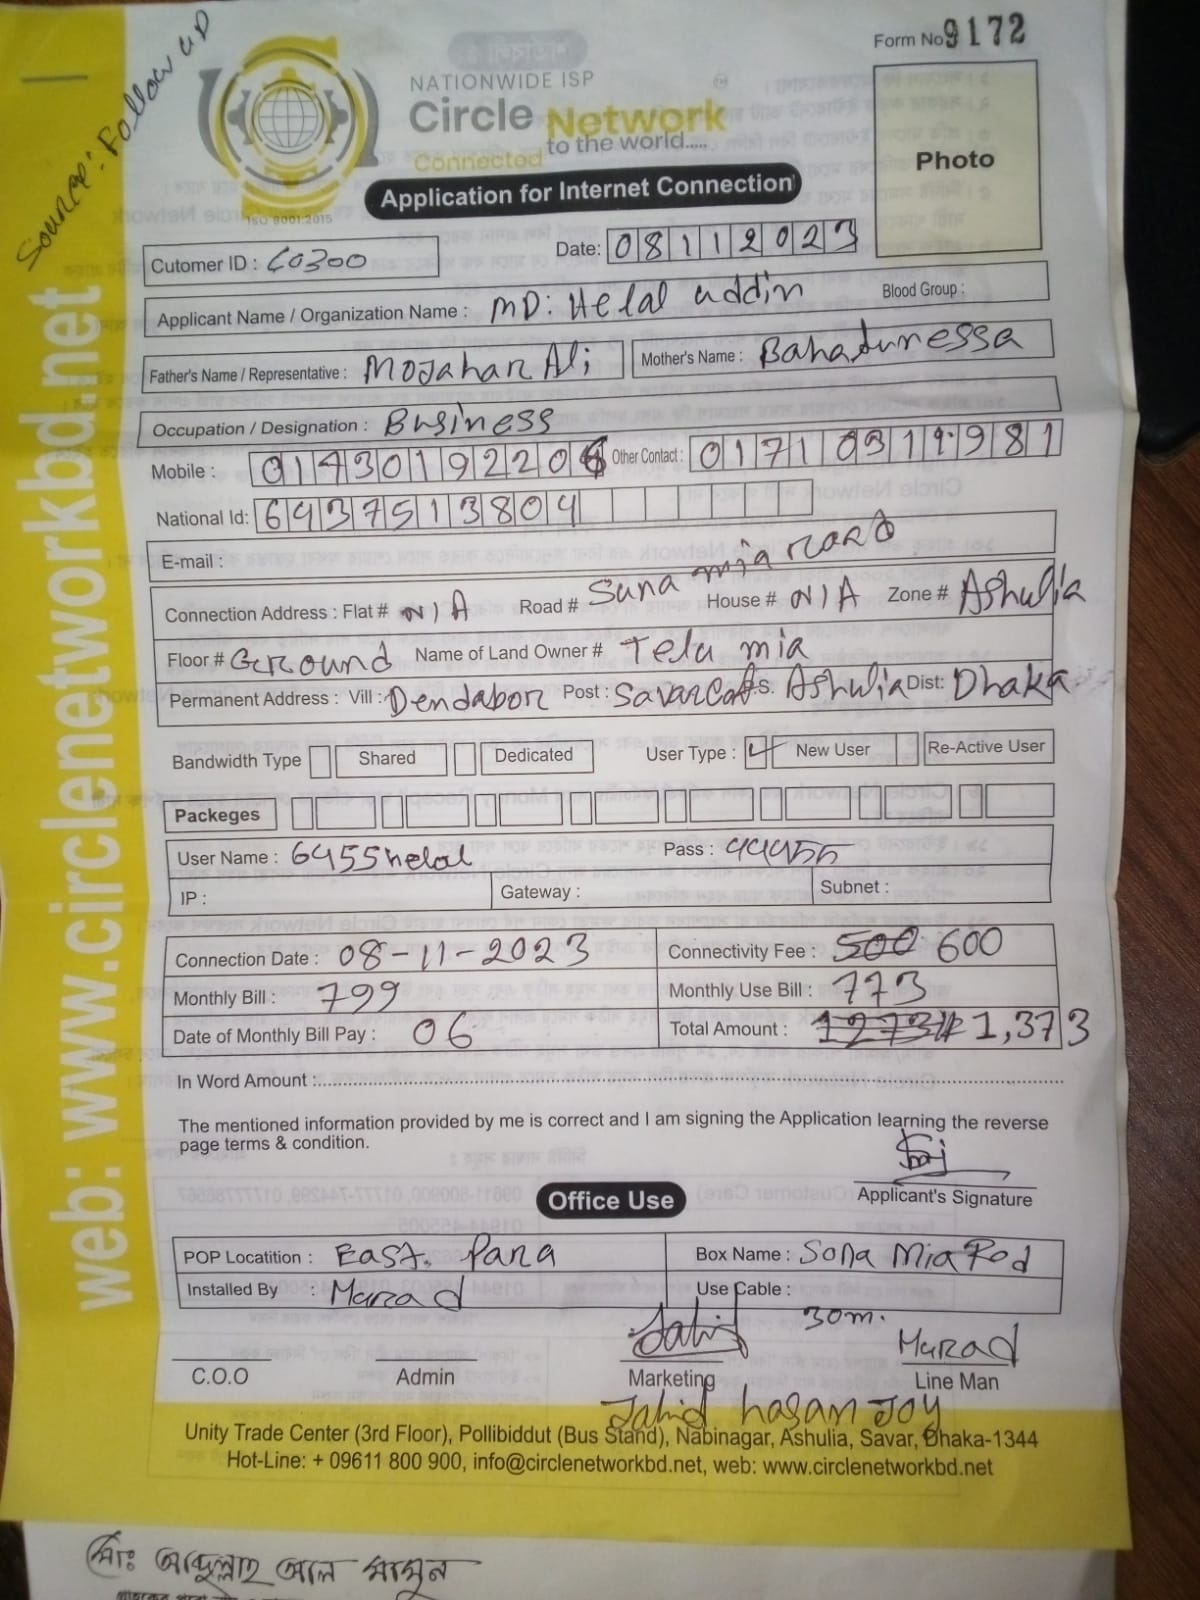 Source: Follow UP
Form No 9172
NATIONWIDE ISP
Circle Network
Connected to the world.....
ISO 9001:2015
Photo
Application for Internet Connection
Cutomer ID : 60300
Date: 08112023
Applicant Name / Organization Name : MD: Helal uddin
Blood Group :
Father's Name / Representative : Mojahar Ali
Mother's Name : Bahadunessa
Occupation / Designation : Business
Mobile : 01430192206 Other Contact : 01710311981
National Id: 6437513804
E-mail :
Connection Address : Flat # N/A Road # Suna mia road House # N/A Zone # Ashulia
Floor # Ground Name of Land Owner # Telu mia
Permanent Address : Vill : Dendabor Post : Savar P.S. Ashulia Dist: Dhaka
Bandwidth Type Shared Dedicated User Type : New User Re-Active User
Packeges
User Name : 6455helal Pass : 44455
IP : Gateway : Subnet :
Connection Date : 08-11-2023 Connectivity Fee : 500 600
Monthly Bill : 799 Monthly Use Bill : 773
Date of Monthly Bill Pay : 06 Total Amount : 1273/- 1,373
In Word Amount :
The mentioned information provided by me is correct and I am signing the Application learning the reverse
page terms & condition.
Applicant's Signature
Office Use
POP Locatition : East. Para Box Name : Sona Mia Rod
Installed By : Murad Use Cable :
30m.
Jahid
Murad
C.O.O Admin Marketing Line Man
Jahid hasan Joy
Unity Trade Center (3rd Floor), Pollibiddut (Bus Stand), Nabinagar, Ashulia, Savar, Dhaka-1344
Hot-Line: + 09611 800 900, info@circlenetworkbd.net, web: www.circlenetworkbd.net
web: www.circlenetworkbd.net
মোঃ আব্দুল্লাহ আল মামুন